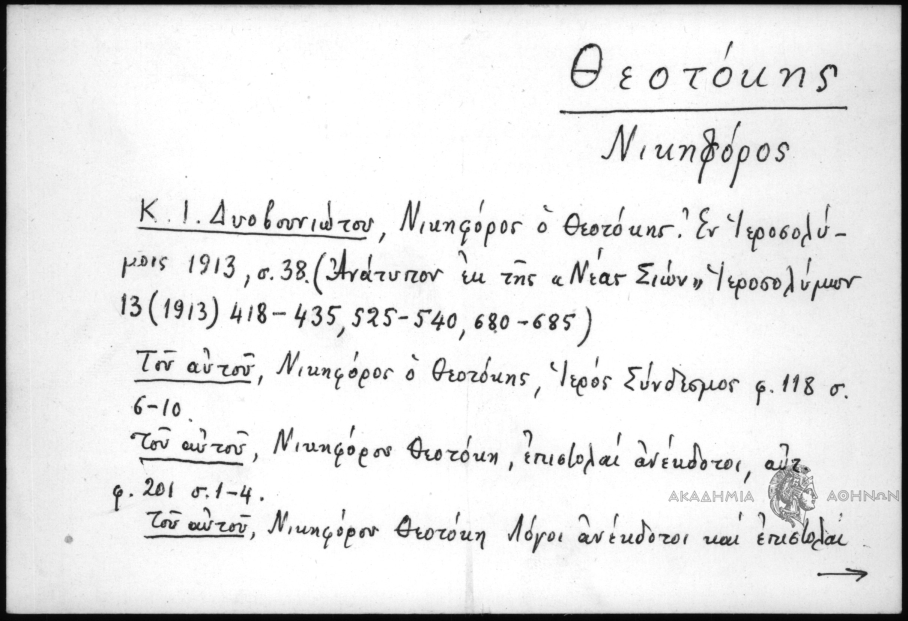 Θεοτόκης
Νικηφόρος
Κ. Ι. Δυοβουνιώτου, Νικηφόρος ὁ Θεοτόκης. Ἐν Ἱεροσολύ-
μοις 1913, σ. 38. (Ἀνάτυπον ἐκ τῆς «Νέας Σιών» Ἱεροσολύμων
13 (1913) 418-435, 525-540, 680-685)
Τοῦ αὐτοῦ, Νικηφόρος ὁ Θεοτόκης, Ἱερός Σύνδεσμος φ. 118 σ.
6-10.
Τοῦ αὐτοῦ, Νικηφόρου Θεοτόκη, ἐπιστολαί ἀνέκδοτοι, αὐτ.
φ. 201 σ. 1-4.
ΑΚΑΔΗΜΙΑ ΑΘΗΝΩΝ
Τοῦ αὐτοῦ, Νικηφόρου Θεοτόκη Λόγοι ἀνέκδοτοι καί ἐπιστολαί
→